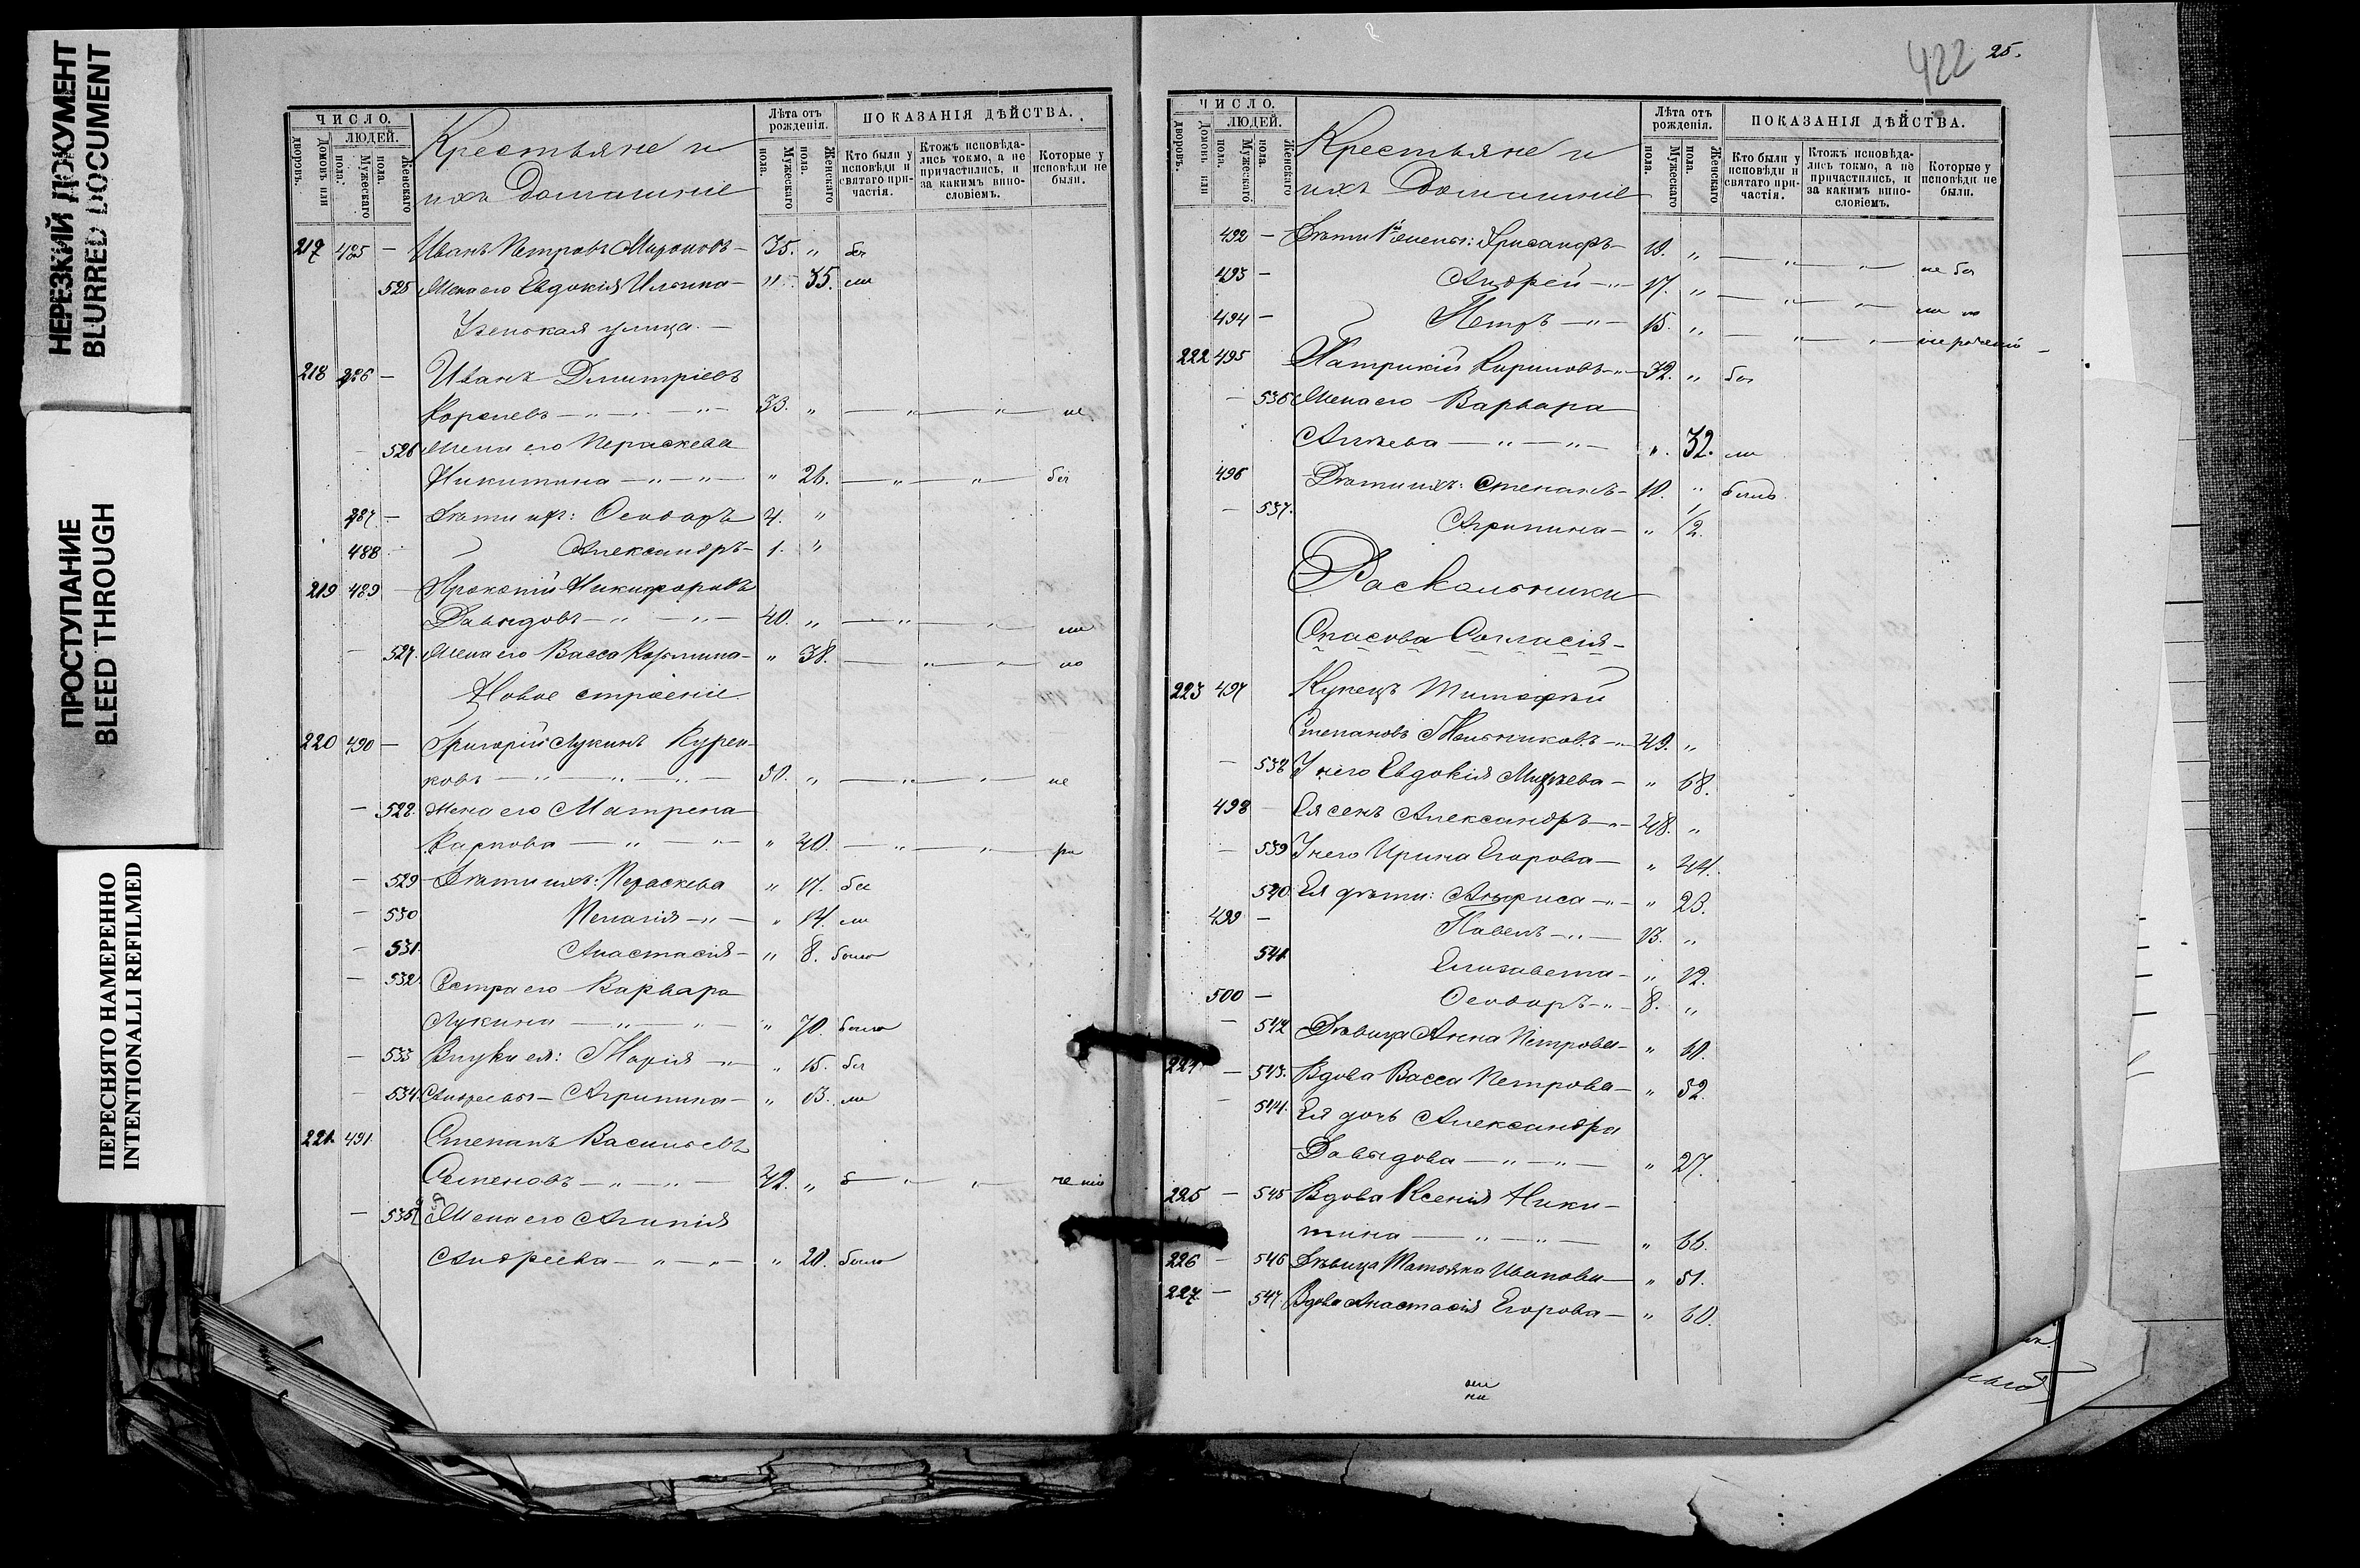 НЕРЕЗКИЙ ДОКУМЕНТ
BLURRED DOCUMENT
ПРОСТУПАНИЕ
BLEED THROUGH
ПЕРЕСНЯТО НАМЕРЕННО
INTENTIONALLI REFILMED
ЧИСЛО.
ЛЮДЕЙ.
Домовъ или дворовъ.
Мужескаго пола.
Женскаго пола.
Крестьяне и
ихъ домашніе
Лѣта отъ рожденія.
Мужескаго пола.
Женскаго пола.
ПОКАЗАНІЯ ДѢЙСТВА.
Кто были у исповѣди и святаго причастія.
Ктожъ исповѣдались токмо, а не причастились, и за какимъ винословіемъ.
Которые у исповѣди не были.
217 485 — Иванъ Петровъ Мироновъ — 35. „ бы
525 Жена его Евдокія Ильина — „ 35. ли
Узенькая улица —
218 486 — Иванъ Дмитріевъ
Королевъ — „ — „ — 33. „ — „ — „ — не
— 526 Жена его Параскева
Никитина — „ — „ — „ 26. — „ — „ бы
487 — Дѣти ихъ: Ѳеодоръ 4. „
488 Александръ — 1. „
219 489 — Прокопій Никифоровъ
Давыдовъ — „ — „ — 40. „ — „ — „ ли
— 527. Жена его Васса Козьмина — „ 38. — „ — „ — по
Новое строеніе
220 490 — Григорій Лукинъ Курен-
ковъ — „ — „ — „ — 50. „ — „ — „ — не
— 528. Жена его Матрена
Карпова — „ — „ — „ 40. — „ — „ — ра
— 529 Дѣти ихъ: Параскева „ 17. бы
— 530 Пелагія — „ — „ 14. ли
— 531. Анастасія — „ 8. были
— 532. Сестра его Варвара
Лукина — „ — „ — „ 70. были
— 533 Внуки ея: Марія — „ „ 15. бы
— 534. Андреевы — Агрипина — „ 13. ли
221. 491. Степанъ Васильевъ
Семеновъ — „ — „ — 42. „ — „ — „
— 535 Жена его Агапія
Андреева — „ — „ — „ 20. были
422 25.
ЧИСЛО.
ЛЮДЕЙ.
Домовъ или дворовъ.
Мужескаго пола.
Женскаго пола.
Крестьяне и
ихъ Домашніе
Лѣта отъ рожденія.
Мужескаго пола.
Женскаго пола.
ПОКАЗАНІЯ ДѢЙСТВА.
Кто были у исповѣди и святаго причастія.
Ктожъ исповѣдались токмо, а не причастились, и за какимъ винословіемъ.
Которые у исповѣди не были.
492 — Дѣти 1й жены: Хрисанфъ — 19. „ — „ — „ — не бы
493 — Андрей — „ — 17. „ — „ — „ — ли по
494 — Петръ — „ — 15. „ — „ — „ —
222 495 Патрикій Кириловъ — „ — 32. „ бы
— 536 Жена его Варвара
— „ — „ — „ 32. ли
496 Дѣти ихъ: Степанъ — 10. „ были
— 537. Агрипина — „ 1/2.
Раскольники
Спасова Согласія —
223 497 Купецъ Тимофей
Степановъ Мельниковъ — „ — 49. „
— 538 У него Евдокія — „ 68.
498 — Ея сынъ Александръ — „ — 48. „
— 539 У него Ирина Егорова — „ 44.
540 Ея дѣти: Анфиса — „ — „ 23.
499 — Павелъ — „ — 13. „
541. Елизавета — „ 12.
500 — Ѳеодоръ — „ — 8. „
— 542 Дѣвица Анна Петрова — „ 60.
224 — 543. Вдова Васса Петрова — „ 52.
— 544. Ея дочь Александра
Давыдова — „ — „ — „ 27.
225 — 545 Вдова Ксенія Ники-
тина — „ — „ — „ 66.
226 — 546 Дѣвица Татьяна Иванова — „ 51.
227. — 547 Вдова Анастасія Егорова — „ 60.